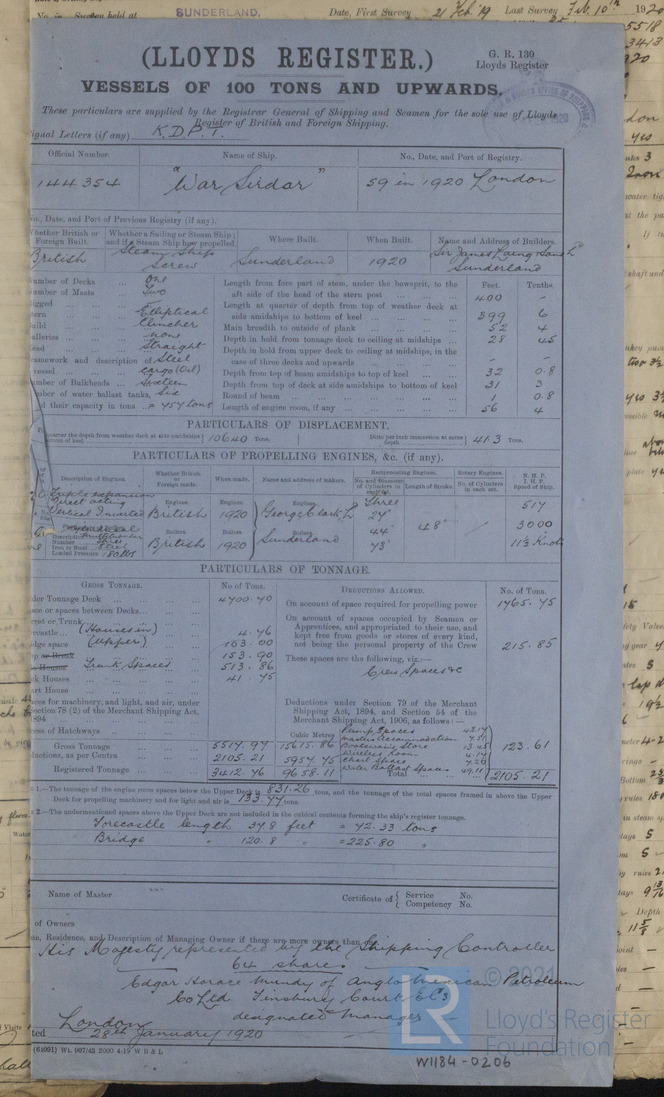 SUNDERLAND,
Date, First Survey 21 Feb '19 Last Survey Feb. 10th 1920
(LLOYDS REGISTER.)
G. R. 130
Lloyds Register
VESSELS OF 100 TONS AND UPWARDS.
These particulars are supplied by the Registrar General of Shipping and Seamen for the sole use of Lloyds
Register of British and Foreign Shipping.
ignal Letters (if any) K.D.P.T.
Official Number. Name of Ship. No., Date, and Port of Registry.
144354 "War Sirdar" 59 in 1920 London
No., Date, and Port of Previous Registry (if any).
Whether British or Foreign Built. Whether a Sailing or Steam Ship; and if a Steam Ship how propelled. Where Built. When Built. Name and Address of Builders.
British Steam Ship Screw Sunderland 1920 Sir James Laing Sons Ld Sunderland
Number of Decks ... One
Number of Masts ... Two
igged
tern ... Elliptical
uild ... Clincher
alleries ... none
ead ... Straight
ramework and description of Steel
vessel ... Cargo (Oil)
umber of Bulkheads ... Sixteen
mber of water ballast tanks, Six
d their capacity in tons 457 tons
Feet. Tenths.
Length from fore part of stem, under the bowsprit, to the
aft side of the head of the stern post 400 -
Length at quarter of depth from top of weather deck at
side amidships to bottom of keel 399 6
Main breadth to outside of plank 52 4
Depth in hold from tonnage deck to ceiling at midships 28 45
Depth in hold from upper deck to ceiling at midships, in the
case of three decks and upwards - -
Depth from top of beam amidships to top of keel 32 0.8
Depth from top of deck at side amidships to bottom of keel 31 3
Round of beam 1 0.8
Length of engine room, if any 56 4
PARTICULARS OF DISPLACEMENT.
quarter the depth from weather deck at side amidships
ottom of keel 10640 Tons. Ditto per inch immersion at same depth 41.3 Tons.
PARTICULARS OF PROPELLING ENGINES, &c. (if any).
Description of Engines. Whether British or Foreign made. When made. Name and address of makers. Reciprocating Engines. Rotary Engines. N. H. P. I. H. P. Speed of Ship.
No. and Diameter of Cylinders in each set. Length of Stroke. No. of Cylinders in each set.
Triple expansion Engines Engines Engines Three 517
Direct acting
Vertical Inverted British 1920 George Clark Ld 27" 48"
Boilers Boilers Boilers 44" 3000
Number Three
Iron or Steel Steel British 1920 Sunderland 73" 11½ Knots
Loaded Pressure 180 lbs
PARTICULARS OF TONNAGE.
GROSS TONNAGE. No of Tons. DEDUCTIONS ALLOWED. No. of Tons.
der Tonnage Deck 4700.70
ace or spaces between Decks
rret or Trunk
recastle (Houses in) 4.76
idge space (Upper) 103.00
op or Break 153.90
House Trunk Spaces 513.86
ck Houses 41.75
art House
ces for machinery, and light, and air, under
Section 78 (2) of the Merchant Shipping Act,
1894
cess of Hatchways
Cubic Metres
Gross Tonnage 5517.97 15615.86
uctions, as per Contra 2105.21 5957.75
Registered Tonnage 3412.76 9658.11
On account of space required for propelling power 1765.75
On account of spaces occupied by Seamen or
Apprentices, and appropriated to their use, and
kept free from goods or stores of every kind,
not being the personal property of the Crew 215.85
These spaces are the following, viz.:—
Crew Spaces &c
Deductions under Section 79 of the Merchant
Shipping Act, 1894, and Section 54 of the
Merchant Shipping Act, 1906, as follows:—
Pump Spaces
Masters Accommodation 7.51
Boatswains Store 13.45
Wireless Room 4.14
Chart Space 7.20
Water Ballast Spaces 49.11
123.61
Total 2105.21
1.—The tonnage of the engine room spaces below the Upper Deck is 831.26 tons, and the tonnage of the total spaces framed in above the Upper
Deck for propelling machinery and for light and air is 133.77 tons
2.—The undermentioned spaces above the Upper Deck are not included in the cubical contents forming the ship's register tonnage.
Forecastle length 37.8 feet = 42.33 tons
Bridge " 120.8 " = 225.80 "
Name of Master
Certificate of { Service No.
Competency No.
of Owners
Residence, and Description of Managing Owner if there are more owners than
His Majesty represented by the Shipping Controller
64 shares
Edgar Horace Mundy of Anglo Mexican Petroleum
Co Ltd Finsbury Court EC3
designated Manager
London
ted 28th January 1920
(61091) Wt. 967/43 2000 4-19 W B & L
LR
© 2021
Lloyd's Register
Foundation
W1184-0206